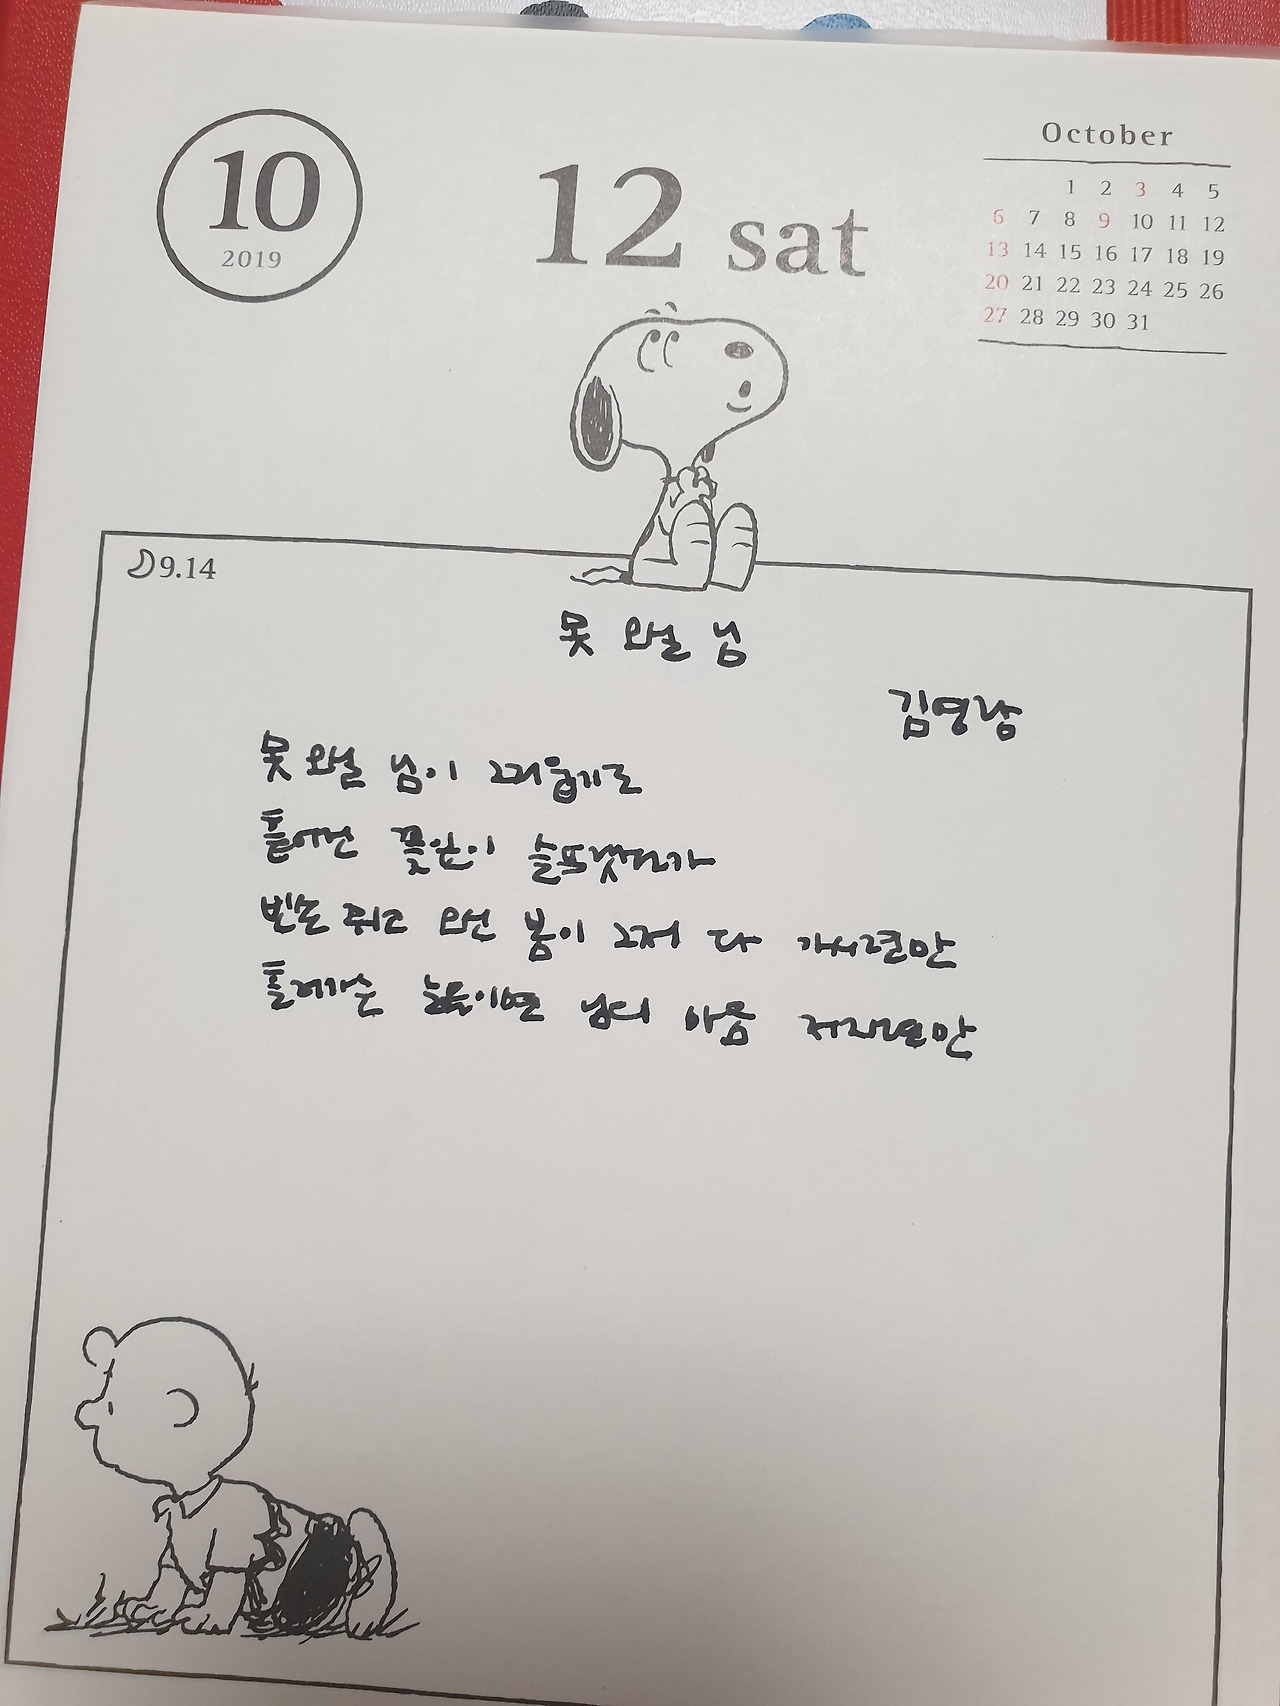 10
2019
12 sat
October
1 2 3 4 5
6 7 8 9 10 11 12
13 14 15 16 17 18 19
20 21 22 23 24 25 26
27 28 29 30 31
9.14
못 오실 님
김영랑
못 오실 님이 그리웁기로
흩어진 꽃잎이 슬프랬던가
빈손 쥐고 오신 봄이 그저 다 가시련만
흘러가는 눈물이면 님의 마음 저지련만